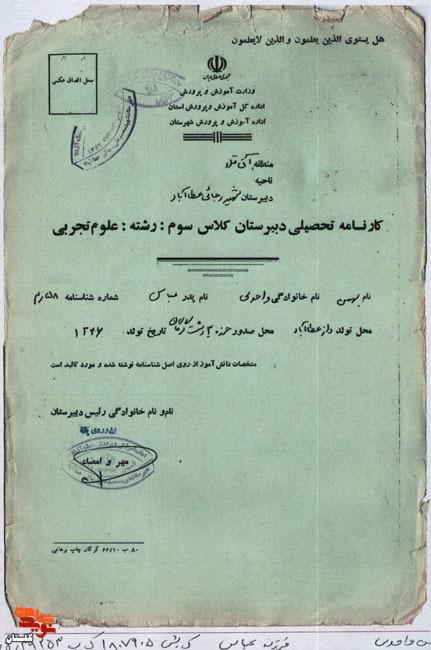 هل یستوی الذین یعلمون و الذین لایعلمون
جمهوری اسلامی ایران
وزارت آموزش و پرورش
اداره کل آموزش و پرورش استان
اداره آموزش و پرورش شهرستان
محل الصاق عکس
منطقه آق قلا
ناحیه
دبیرستان شهید رجائی عطاآباد
کارنامه تحصیلی دبیرستان کلاس سوم : رشته : علوم تجربی
نام بهمن نام خانوادگی واحدی نام پدر عباس شماره شناسنامه
محل تولد عطاآباد محل صدور تاریخ تولد ۱۳۴۶
مشخصات دانش آموز از روی اصل شناسنامه نوشته شده و مورد تائید است
نام و نام خانوادگی رئیس دبیرستان
مهر و امضاء
۸۰ ب ۶۳/۱۰ گرگان چاپ برهانی
واحدی فرزند عباس